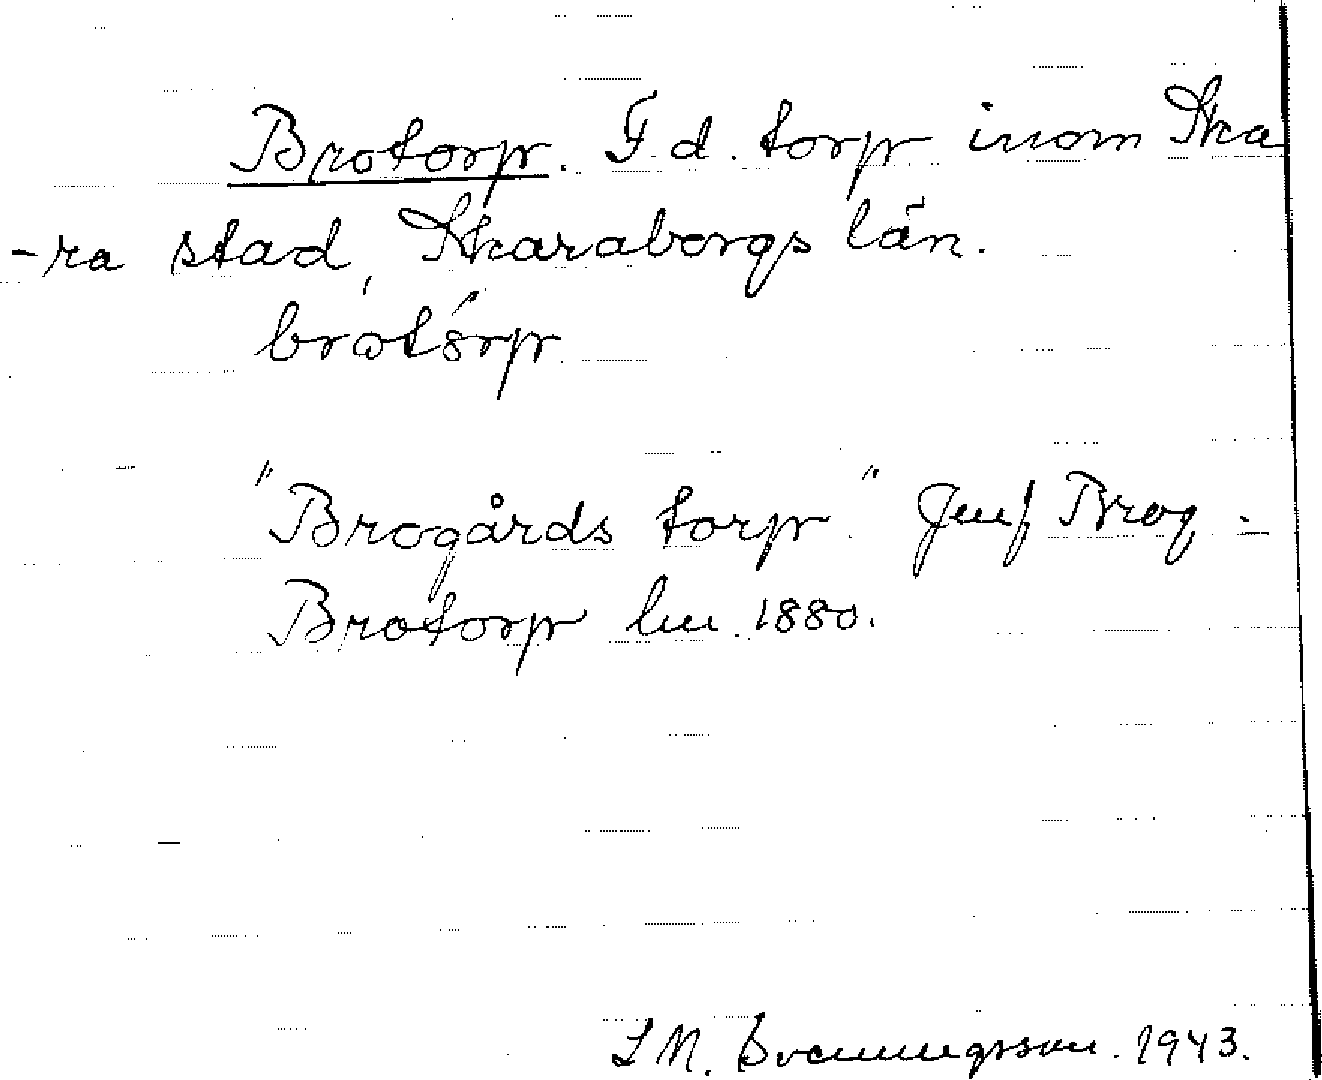 Brotorp. F.d. torp inom Ska
-ra stad, Skaraborgs län.
brotorp
"Brogårds torp." Jmf Brog -
Brotorp hu. 1880.
S M. Svenningsson. 1943.